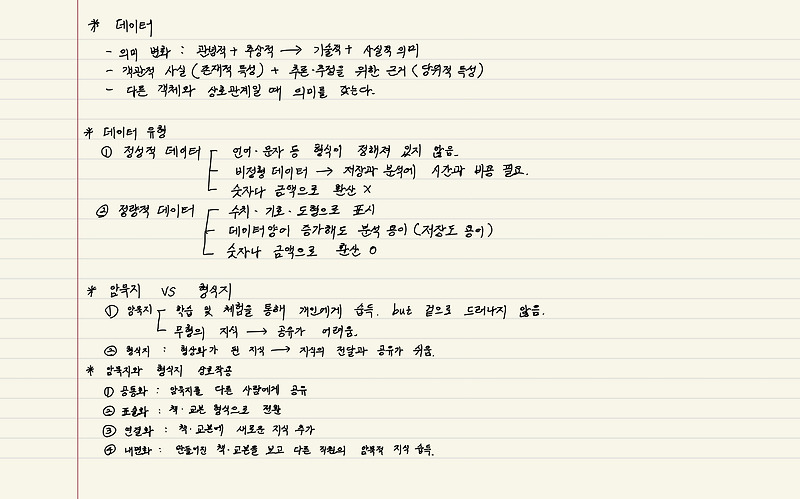 * 데이터
- 의미 변화 : 관념적 + 추상적 → 기술적 + 사실적 의미
- 객관적 사실 (존재적 특성) + 추론·추정을 위한 근거 (당위적 특성)
- 다른 객체와 상호관계일 때 의미를 갖는다.
* 데이터 유형
① 정성적 데이터 언어·문자 등 형식이 정해져 있지 않음.
비정형 데이터 → 저장과 분석에 시간과 비용 필요.
숫자나 금액으로 환산 X
② 정량적 데이터 수치·기호·도형으로 표시
데이터양이 증가해도 분석 용이 (저장도 용이)
숫자나 금액으로 환산 O
* 암묵지 VS 형식지
① 암묵지 학습 및 체험을 통해 개인에게 습득. but 겉으로 드러나지 않음.
무형의 지식 → 공유가 어려움.
② 형식지 : 형상화가 된 지식 → 지식의 전달과 공유가 쉬움.
* 암묵지와 형식지 상호작용
① 공통화 : 암묵지를 다른 사람에게 공유
② 표출화 : 책·교본 형식으로 전환
③ 연결화 : 책·교본에 새로운 지식 추가
④ 내면화 : 만들어진 책·교본을 보고 다른 직원의 암묵적 지식 습득.